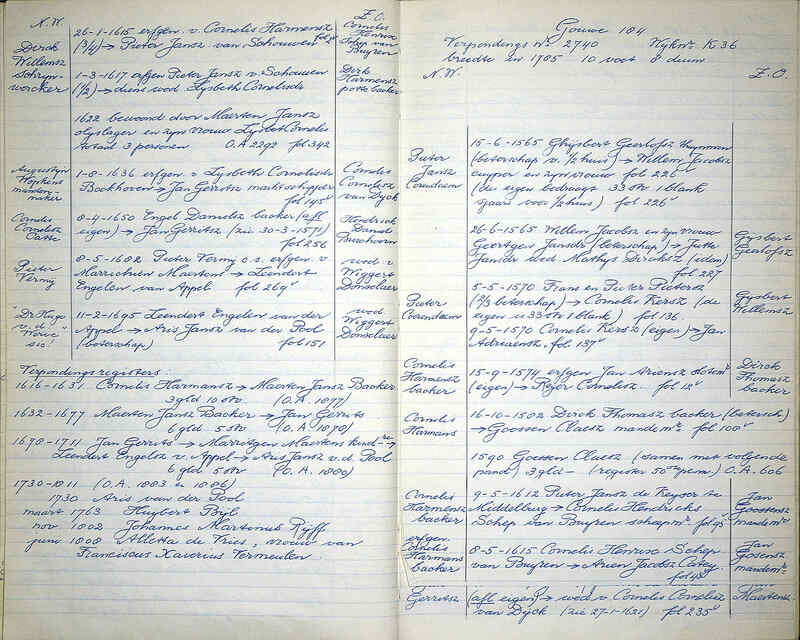 N.W.
Z.O.
Dirck
Willemsz
Schryn-
wercker
26-1-1615 erfgen. v. Cornelis Harmensz
(3/4) → Pieter Jansz. van Schouwen
Cornelis
Henrixz
Schep van
Buyren
1-3-1617 erfgen Pieter Jansz v. Schouwen
(1/2) → diens wed Lysbeth Cornelisdr
Dirk
Harmensz
pottebacker
1622 bewoond door Maerten Jansz
olyslager en zyn vrouw Lysbet Cornelis
totaal 3 personen O.A 2292 fol 342
Augustyn
Wopkens
manden-
maker
1-8-1636 erfgen v Lysbeth Cornelisdr
Backhoven → Jan Gerritsz marktschipper
fol 145v
Cornelis
Cornelisz
van Dyck
Cornelis
Cornelisz
Catte
8-4-1650 Engel Danielsz backer (afl
eigen) → Jan Gerritsz (zie 30-3-1571)
fol 256
Hendrick
Daniel
Pieter
Verny
8-5-1682 Pieter Verny c.s. erfgen. v
Marrichien Maertens → Leendert
Engelen van Appel fol 269v
wed. v
Wiggert
Donselaer
"Dr Hugo
v. d.
Werve"
sic!
11-2-1695 Leendert Engelen van der
Appel → Aris Jansz van der Pool
(beterschap) fol 151
wed
Wiggert
Donselaer
Verpondings registers:
1616-1631 Cornelis Harmansz → Maerten Jansz Backer
3 gld 10 stv (O.A. 1877)
1632-1677 Maerten Jansz Backer → Jan Gerrits
6 gld 5 stv (O.A. 1878)
1678-1711 Jan Gerrits → Marritgen Maertens kind-re →
Leendert Engelsz v. Appel → Aris Jansz v.d. Pool
6 gld 5 stv (O.A. 1880)
1730-1811 (O.A. 1883 en 1886)
1730 Aris van der Pool
maart 1763 Huybert Byl
nov 1802 Johannes Martinus Ryff
juni 1808 Aletta de Vries, vrouw van
Franciscus Xaverius Termeulen
Gouwe 184
Verpondings No 2740 Wyknr. K 36
breedte in 1785 10 voet 8 duim
N.W.
Z.O.
Pieter
Jansz
Corendaem
15-6-1565 Ghysbert Geerlofsz
(beterschap v. 1/2 huis) → Willem Jacobsz
cuyper en zyn vrouw fol 226v
(de eigen bedraagt 33 stv 1 blank
sjaars voor 1/2 huis) fol 226v
26-6-1565 Willem Jacobsz en zyn vrouw
Geertgen Jansdr (beterschap) → Jutte
Jansdr wed Mathys Dircksz (idem)
fol 227
Gysbert
Geerlofsz
Pieter
Corendaem
5-5-1570 Frans en Pieter Pietersz
beterschap) → Cornelis Kersz (de
eigen is 33 stv 1 blank) fol 136.
9-5-1570 Cornelis Kersz (eigen) → Jan
Adriaensz. fol. 137v
Gysbert
Willemsz
Cornelis
Harmensz
backer
15-9-1574 erfgen Jan Ariensz
(eigen) → Reyer Cornelisz. fol 12v
Dirck
Thomasz
backer
Cornelis
Harmans
16-10-1582 Dirck Thomasz backer (betersch)
→ Goossen Claesz mandemr. fol 100v
1590 Goessen Claesz (samen met volgende
pand) 3 gld – (register 50ste penn) O.A. 606
Cornelis
Harmensz
backer
9-5-1612 Pieter Jansz de Keyser te
Middelburg → Cornelis Hendricks
Schep van Buyren schepmr. fol 95v
Jan
Goossensz
mandemr
erfgen.
Cornelis
Harmans
backer
8-5-1615 Cornelis Henrixsz Schep
van Buyren → Arien Jacobsz
Jan
Gosensz
mandemr
Gerritsz
(afl eigen) → wed v Cornelis Cornelisz
van Dyck (zie 27-1-1621) fol 235v
Maertensz